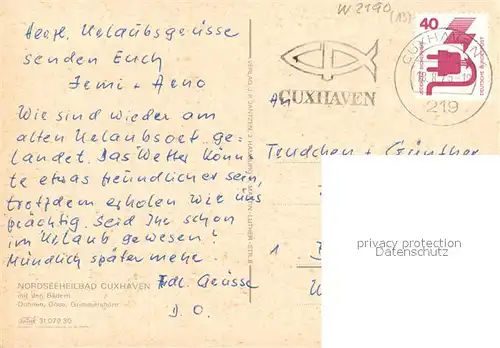 W 2190
(13)
Herzl. Urlaubsgrüsse
senden Euch
Arno
Wie sind wieder am
alten Urlaubsort ge-
landet. Das Wetter könn-
te etwas freundlicher sein,
trotzdem erholen wir uns
prächtig. Seid Ihr schon
im Urlaub gewesen?
Mündlich später mehr.
Frdl. Grüsse
D. O.
NORDSEEHEILBAD CUXHAVEN
mit den Bädern
Döhnen, Döse, Grimmershörn
CUXHAVEN
40
DEUTSCHE BUNDESPOST
CUXHAVEN
219
An
Günther
1
privacy protection
watermark